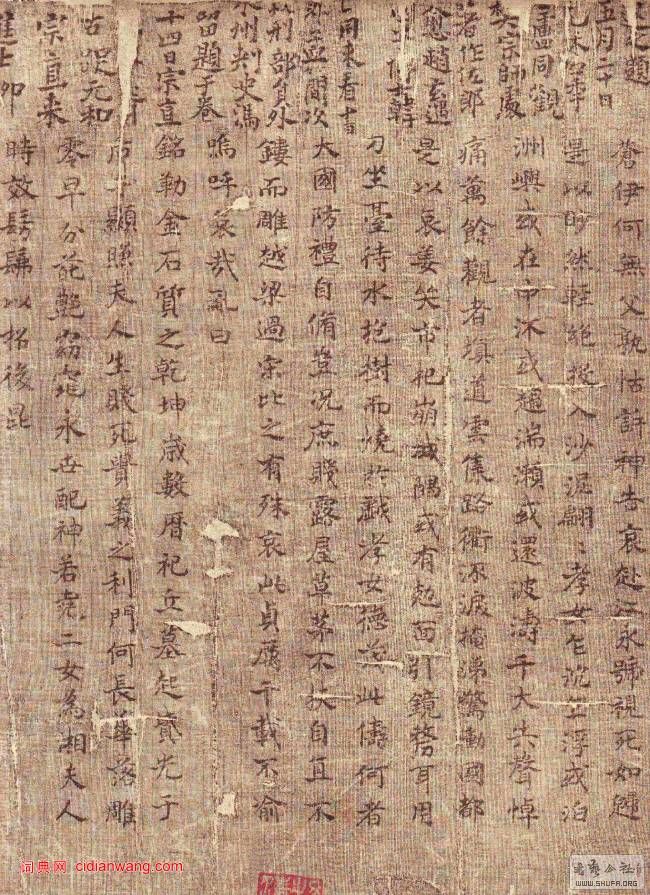 題
五月二十日
同觀
宗師處
著作佐郎
愈趙玄遇
同來看
並間次
刑部員外
州刺史馮
留題于卷
十四日宗直
元和
宗直来
進士
蒼伊何無父孰怙訴神告哀赴江永號視死如歸
是以眇然輕絕投入沙泥翩〻孝女乍沉乍浮或泊
洲嶼或在中流或趨湍瀨或還波濤千夫失聲悼
痛萬餘觀者填道雲集路衢泣淚掩涕驚動國都
是以哀姜哭市杞崩城隅或有尅面引鏡剺耳用
刀坐臺待水抱樹而燒於戲孝女德茂此儔何者
大國防禮自脩豈況庶賤露屋草茅不扶自直不
鏤而雕越梁過宋比之有殊哀此貞厲千載不渝
嗚呼哀哉亂曰
銘勒金石質之乾坤歲數曆祀丘墓起墳光于
后土顯照夫人生賤死貴義之利門何長華落雕
零早分葩艷窈窕永世配神若堯二女為湘夫人
時效髣髴以招後昆
词典网 cidianwang.com
WWW.SHUFA.ORG